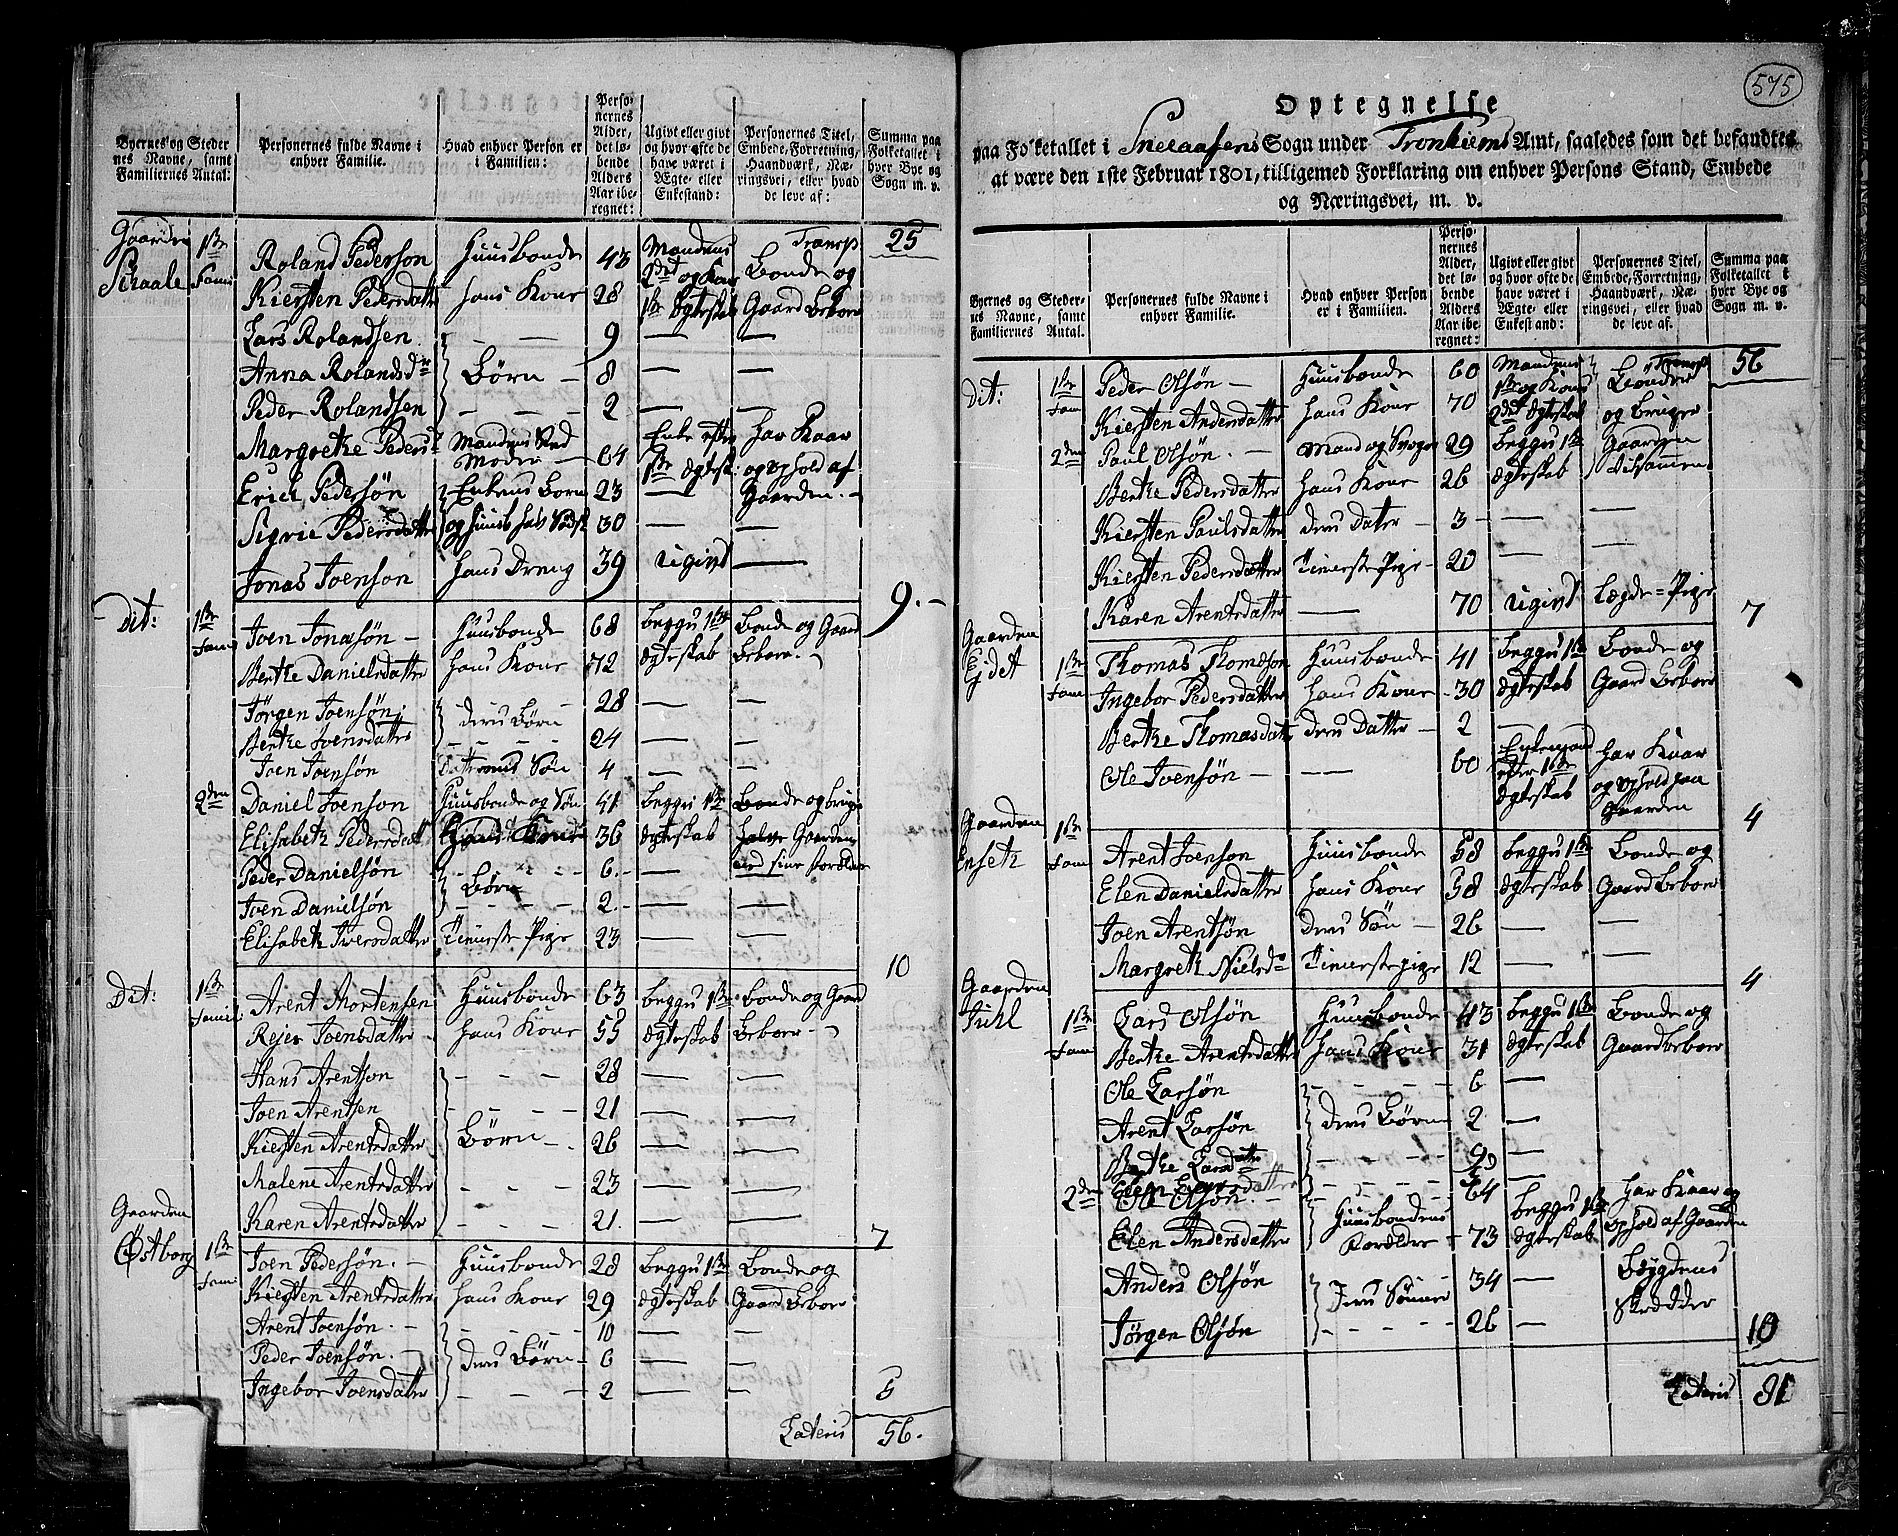 Byernes og Steder-
nes Navne, samt
Familiernes Antal:
Personernes fulde Navne i
enhver Familie.
Hvad enhver Person er
i Familien:
Perso-
nernes
Alder,
det lø-
bende
Alders
Aar ibe-
regnet:
Ugivt eller givt
og hvor ofte de
have været i
Ægte- eller
Enkestand:
Personernes Titel,
Embede, Forretning,
Haandværk, Næ-
ringsvei, eller hvad
de leve af:
Summa paa
Folketallet i
hver Bye og
Sogn m. v.
Transp 25
Gaarden 1ste Roland Pederson Huusbonde 43 Mandens Bonde og
Schaale Fami Kiersten Pedersdatter hans Kone 28 1ste Ægteskab Gaard Beboer
Lars Rolandsen — — 9 — —
Anna Rolandsdr Børn — 8 — —
Peder Rolandsen — — — 2 — —
Margrethe Pedersd Mandens Moder — 64 Enke efter 1ste Ægtesk: har Kaar og ophold af
Erich Pedersøn Enkens Børn 23 — Gaarden. —
Sigrie Pedersdatter og huusb halv Sødsk 30 — —
Jonas Joenson hans Dreng 39 Ugivt —
9. —
Dit: 1ste Joen Jonasøn — Huusbonde 68 begge 1ste Bonde og Gaard
Fam Berthe Danielsdatter hans Kone 72 Ægteskab Beboer. —
Jørgen Joensøn. 28 — —
Berthe Joensdatter deres Børn 24 — —
Joen Joensøn Datterens Søn 4 — —
2den Daniel Joenson Huusbonde og Søn 41 begge 1ste Bonde og bruger
Elisabeth Pedersdatt hans Kone 36 Ægteskab halve Gaarden
Peder Danielsøn — — 6. — — med sine forældre
Joen Danielsøn Børn 2. — —
Elisabeth Iversdatter Tieneste Pige 23 — —
10
Dit: 1ste Arent Mortensen Huusbonde 63 begge 1ste Bonde og Gaard
Famil: Rejer Joensdatter — hans Kone 55 Ægteskab Beboer — —
Hans Arentson — — — 28 — —
Joen Arentsen — — — 21 — —
Kiersten Arentsdatter Børn — 26 — —
Malene Arentsdatter — — 23 — —
Karen Arentsdatter — — — 21. — —
7
Gaarden
Østborg 1ste Joen Pedersøn. — Huusbonde 28 begge 1ste Bonde og
Fam: Kiersten Arentsdatter hans Kone 29 Ægteskab Gaard Beboer
Arent Joensøn. — — — — 10 — —
Peder Joensøn. — deres Børn — 6 — —
Ingebor Joensdatter — — — 2 — —
5
Lateris 56.
575
Optegnelse
paa Folketallet i Sneaasens Sogn under Tronhiems Amt, saaledes som det befandtes
at være den 1ste Februar 1801, tilligemed Forklaring om enhver Persons Stand, Embede
og Næringsvei, m. v.
Byernes og Steder-
nes Navne, samt
Familiernes Antal.
Personernes fulde Navne i
enhver Familie.
Hvad enhver Person
er i Familien.
Perso-
nernes
Alder,
det lø-
bende
Alders
Aar ibe-
regnet:
Ugivt eller givt
og hvor ofte de
have været i
Ægte- eller
Enkestand:
Personernes Titel,
Embede, Forretning,
Haandværk, Næ-
ringsvei, eller hvad
de leve af.
Summa paa
Folketallet i
hver Bye og
Sogn m. v.
Transp 56
Dit: 1ste Peder Olsøn — Huusbonde 60 Mandens Bonder
Fam Kiersten Andersdatter hans Kone 70 1ste og Kones 2det Ægteskab og bruger
2den Paul Olsøn. — Mand og Svoger 29 begge 1ste Gaarden
Berthe Pedersdatter hans Kone 26 Ægteskab tilsammen
Kiersten Paulsdatter deres Dater — 3 — — —
Kiersten Pedersdatter Tieneste Pige — 20 — —
Karen Arentsdatter — 70 Ugivt Lægde = Pige
7
Gaarden
Ejdet 1ste Thomas Thomeson Huusbonde 41 begge 1ste Bonde og
Fam Ingebor Pedersdatter hans Kone — 30 Ægteskab Gaard Beboer
Berthe Thomasdat deres Datter — 2 —
Ole Joensøn — — — 60 Enkemand efter 1ste Ægteskab har Kaar og ophold paa Gaarden
4
Gaarden 1ste
Enseth Fam Arent Joenson Huusbonde 58 begge 1ste Bonde og
Elen Danielsdatter hans Kone 58 Ægteskab Gaard beboer
Joen Arentsøn deres Søn — 26 — —
Margreth Nielsdr Tieneste pige 12 — —
4
Gaarden
Juhl 1ste Lars Olsøn Huusbonde 43 begge 1ste Bonde og
Fam Berthe Arentsdatter hans Kone 31 Ægteskab Gaard beboer
Ole Larsøn — — — — 6 —
Arent Larsøn deres Børn 2 —
Berthe Larsdatter — — — — 9 —
Elen Larsdatter —
2den Ole Olsøn — 64 begge 1ste har Kaar og
Elen Andersdatter Huusbondens Forældre — 73 Ægteskab ophold af Gaarden
Anders Olsøn deres Sønner 34 — Bøygdens Skrædder
Jørgen Olsøn — — — — 26 —
10
Lateris 81